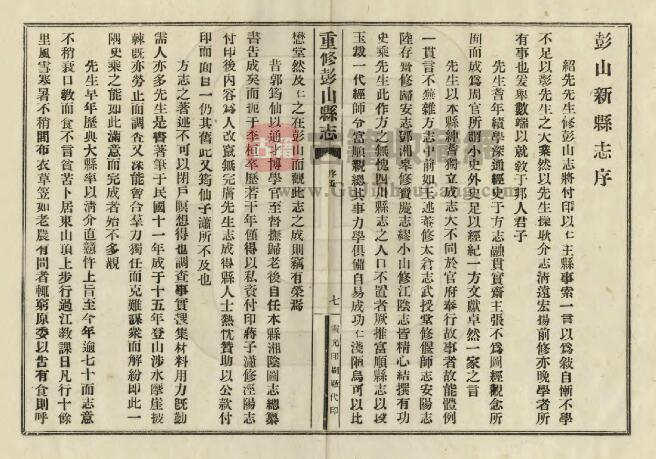 彭山新縣志序
紹先先生修彭山志將付印以仁主縣事索一言以爲敘自慚不學
不足以彰先生之大業然以先生操耿介志淸遠宏揚前修亦晚學者所
有事也爰舉數端以就敎于邦人君子
先生耆年績學深通經史于方志融貫實齋主張不爲圖經觀念所
囿而成爲周官所謂小史外史足以經紀一方文獻卓然一家之言
先生以本縣紳耆獨立成志大不同於官府奉行故事者故能體例
一貫言不蕪雜方志中前如王述菴修太倉志武授堂修偃師志安陽志
陸存齋修歸安志鄧湘皋修寶慶志繆小山修江陰志皆精心結撰有功
史乘先生此作方之無愧四川縣志之人口不置者厥推富順縣志以段
玉裁一代經師令富順親總其事力學俱備自易成功仁淺陋烏可以比
重修彭山縣志
序五
七
雷元印刷社代印
懋堂然及仁之在彭山而觀此志之成則竊有榮焉
昔郭筠仙以通才博學官至督撫歸老後自任本縣湘陰圖志總纂
書告成矣而扼于李桓卒歷若干年僅得以私資付印蔣子瀟修涇陽志
付印後內容爲人改竄無完膚先生志成得縣人士熱忱贊助以公款付
印而面目一仍其舊此又筠仙子瀟所不及也
方志之著述不可以閉戶瞑想得也調查事實搜集材料用力旣勤
需人亦多先生是書著筆于民國十一年成于十五年登山涉水摩崖披
棘旣亦勞止而調查又深能會合羣力獨任而克難謀衆而解紛即此一
隅史乘之能如此滿意而完成者殆不多覯
先生早年歷典大縣率以淸介直戇忤上旨至今年逾七十而志意
不稍衰口敎而食不言貧苦卜居東山頂上步行過江敎課日凡行十餘
里風雪寒暑不稍間布衣草笠如老農有問者輒窮原委以告有食則呼